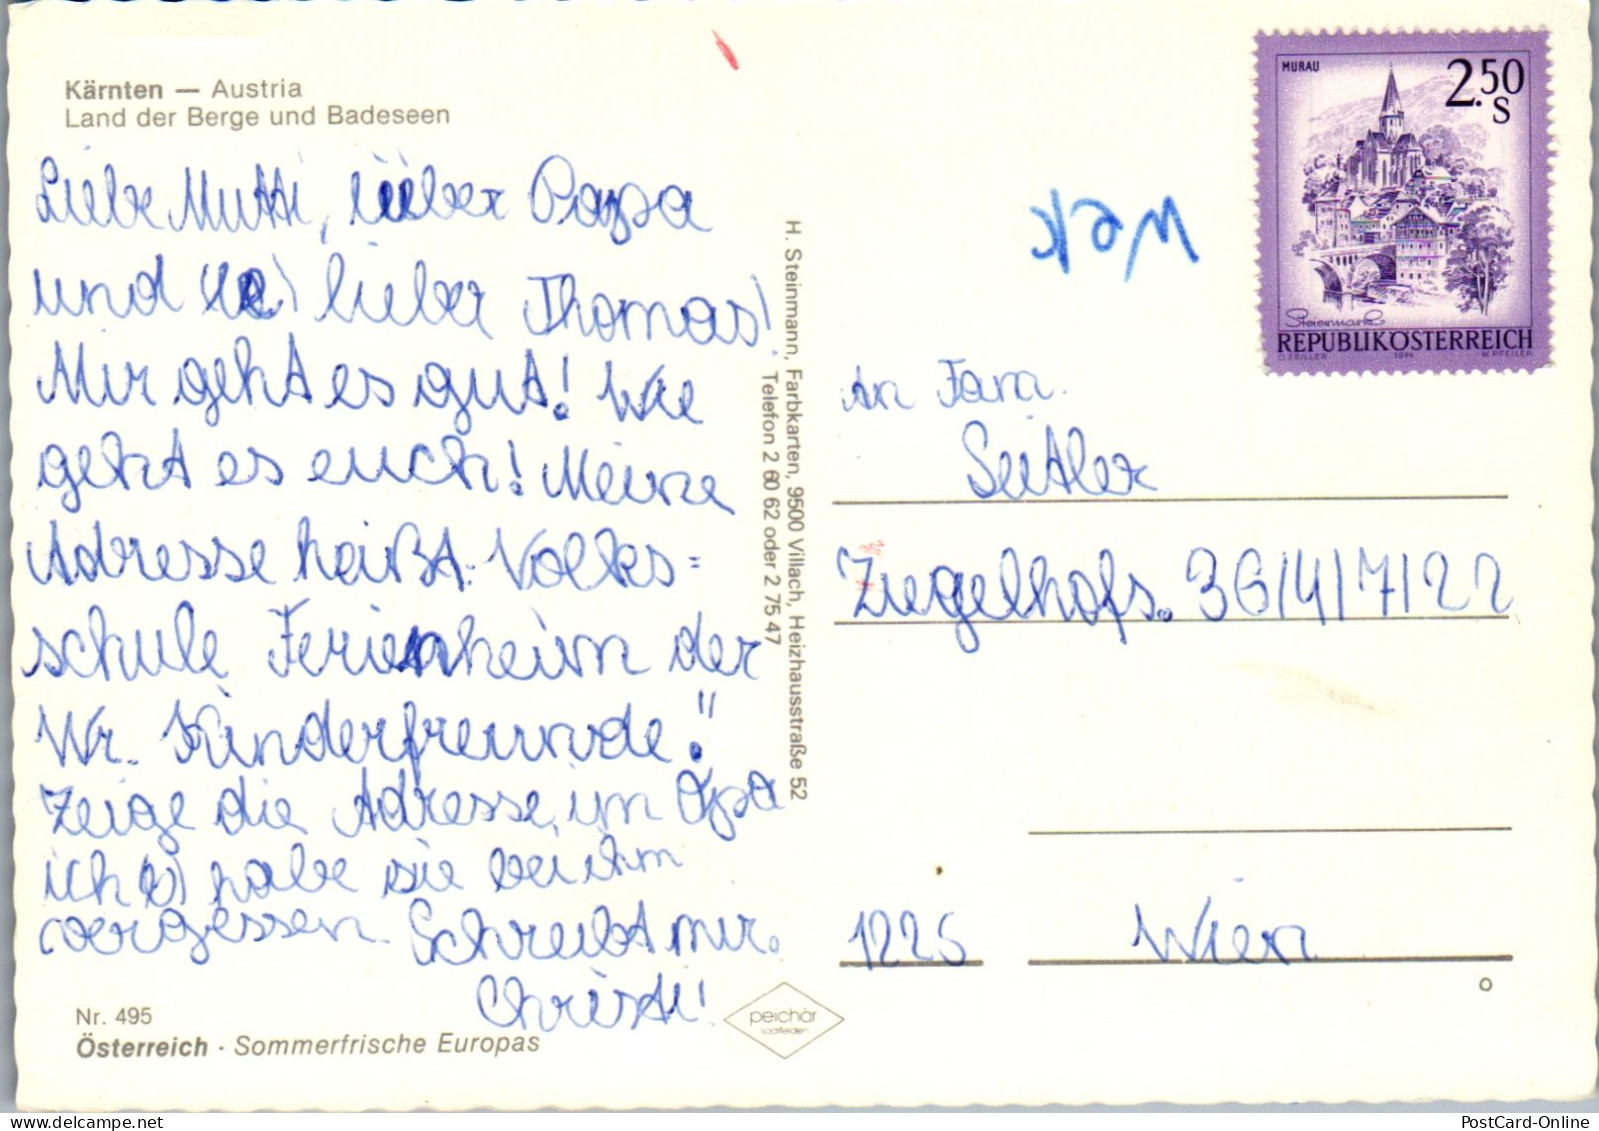 Kärnten — Austria
Land der Berge und Badeseen
Liebe Mutti, lieber Papa
und lieber Thomas!
Mir geht es gut! Wie
geht es euch! Meine
Adresse heißt: Volks=
schule Ferienheim der
Wr. Kinderfreunde!"
Zeige die Adresse, im Opa
ich habe sie bei ihm
vergessen. Schreibt mir.
Christi!
Nr. 495
Österreich · Sommerfrische Europas
H. Steinmann, Farbkarten, 9500 Villach, Heizhausstraße 52
Telefon 2 60 62 oder 2 75 47
peichär
saalfelden
MURAU
2.50
S
Steiermark
REPUBLIK ÖSTERREICH
O. ZEILLER 1974 W. PFEILER
An Fam.
Seitler
Ziegelhofs. 36/4/7/22
1225 Wien
PostCard-Online